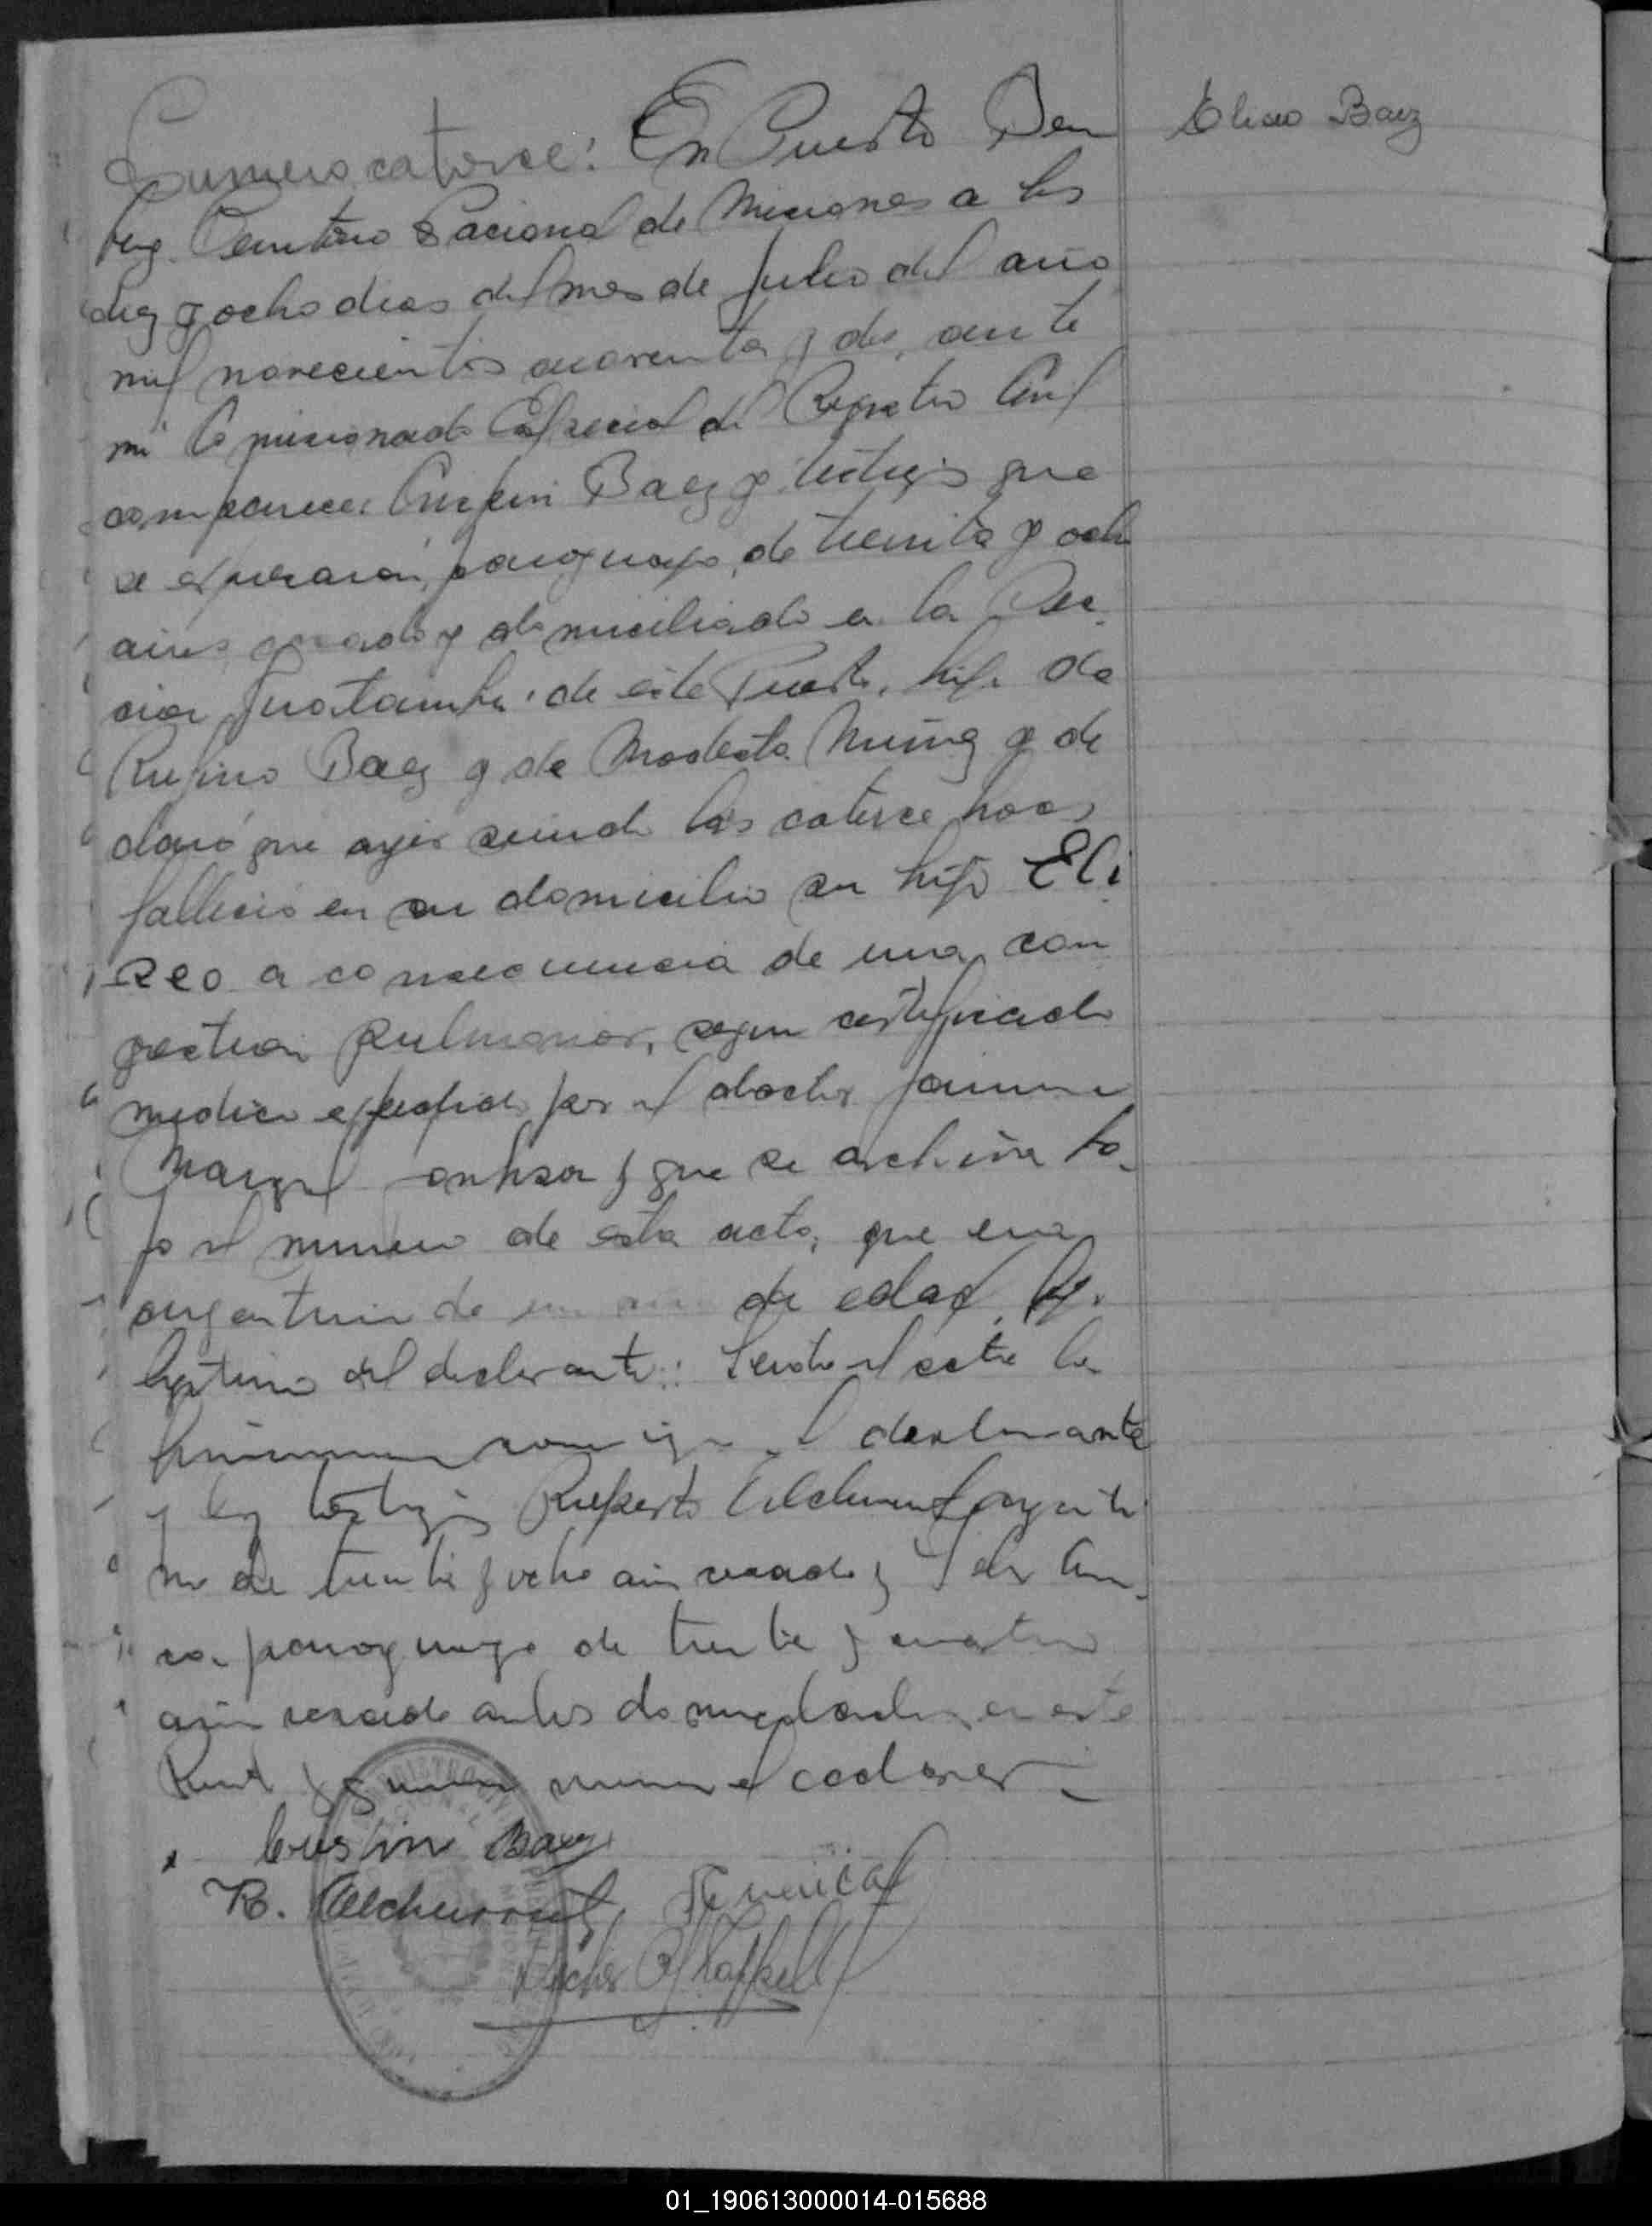 Numero catorce: En Puerto Ben
berg Territorio Nacional de Misiones a los
diez y ocho dias del mes de Julio del año
mil novecientos cuarenta y dos, ante
mi Comisionado Especial del Registro Civil
comparece Baez y testigos que
se expresaran, paraguayo, de treinta y ocho
años casado y domiciliado en la Sec
cion de este Puerto, hijo de
Rufino Baez y de Modesta y de
claró que ayer siendo las catorce horas
fallecio en su domicilio su hijo Eli
seo a consecuencia de una con
gestion pulmonar, segun certificado
medico expedido por el doctor
y que se archiva ba
jo el numero de esta acta, que era
argentino de un de edad, hijo
legitimo del declarante: Leida el acta la
el declarante
y los testigos Ruperto argenti
no de treinta y ocho años casado y
paraguayo de treinta y cuatro
años casado ambos domiciliados en este
Puerto y quienes vieron el cadaver
Baez
R.
Eliseo Baez
01_190613000014-015688